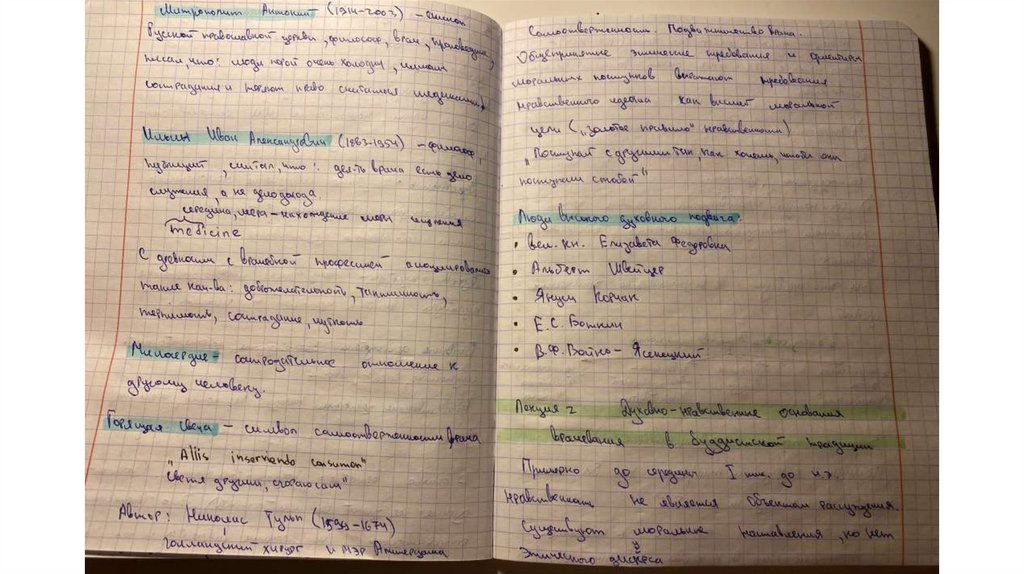 Митрополит Антоний (1914-2003) - епископ
Русской православной церкви, философ, врач, проповедник,
писал, что: люди порой очень холодны, лишены
сострадания и теряют право считаться медиками.
Ильин Иван Александрович (1883-1954) - философ,
публицист, считал, что: деят-ть врача есть дело
служения, а не дело дохода
середина, мера - нахождение меры
medicine
С древности с врачебной профессией ассоциировались
такие кач-ва: доброжелательность, тактичность,
терпимость, сострадание, чуткость
Милосердие - сострадательное отношение к
другому человеку.
Горящая свеча - символ самоотверженности врача
"Aliis inserviendo consumor"
"светя другим, сгораю сам"
Автор: Николас Тульп (1593-1674)
голландский хирург и мэр Амстердама
Самоотверженность. Подвижничество врача.
Общепринятые этические требования и ориентиры
моральных поступков вытекают требования
нравственного идеала как высшей моральной
цели ("золотое правило" нравственности)
"Поступай с другими так, как хочешь, чтобы они
поступали с тобой"
Люди высокого духовного подвига:
• вел. кн. Елизавета Федоровна
• Альберт Швейцер
• Януш Корчак
• Е.С. Боткин
• В.Ф. Войно-Ясенецкий
Лекция 2 Духовно-нравственные основания
врачевания в буддистской традиции
Примерно до середины I тыс. до н.э.
нравственность не является объектом рассуждения.
Существуют моральные наставления, но нет
этического дискурса